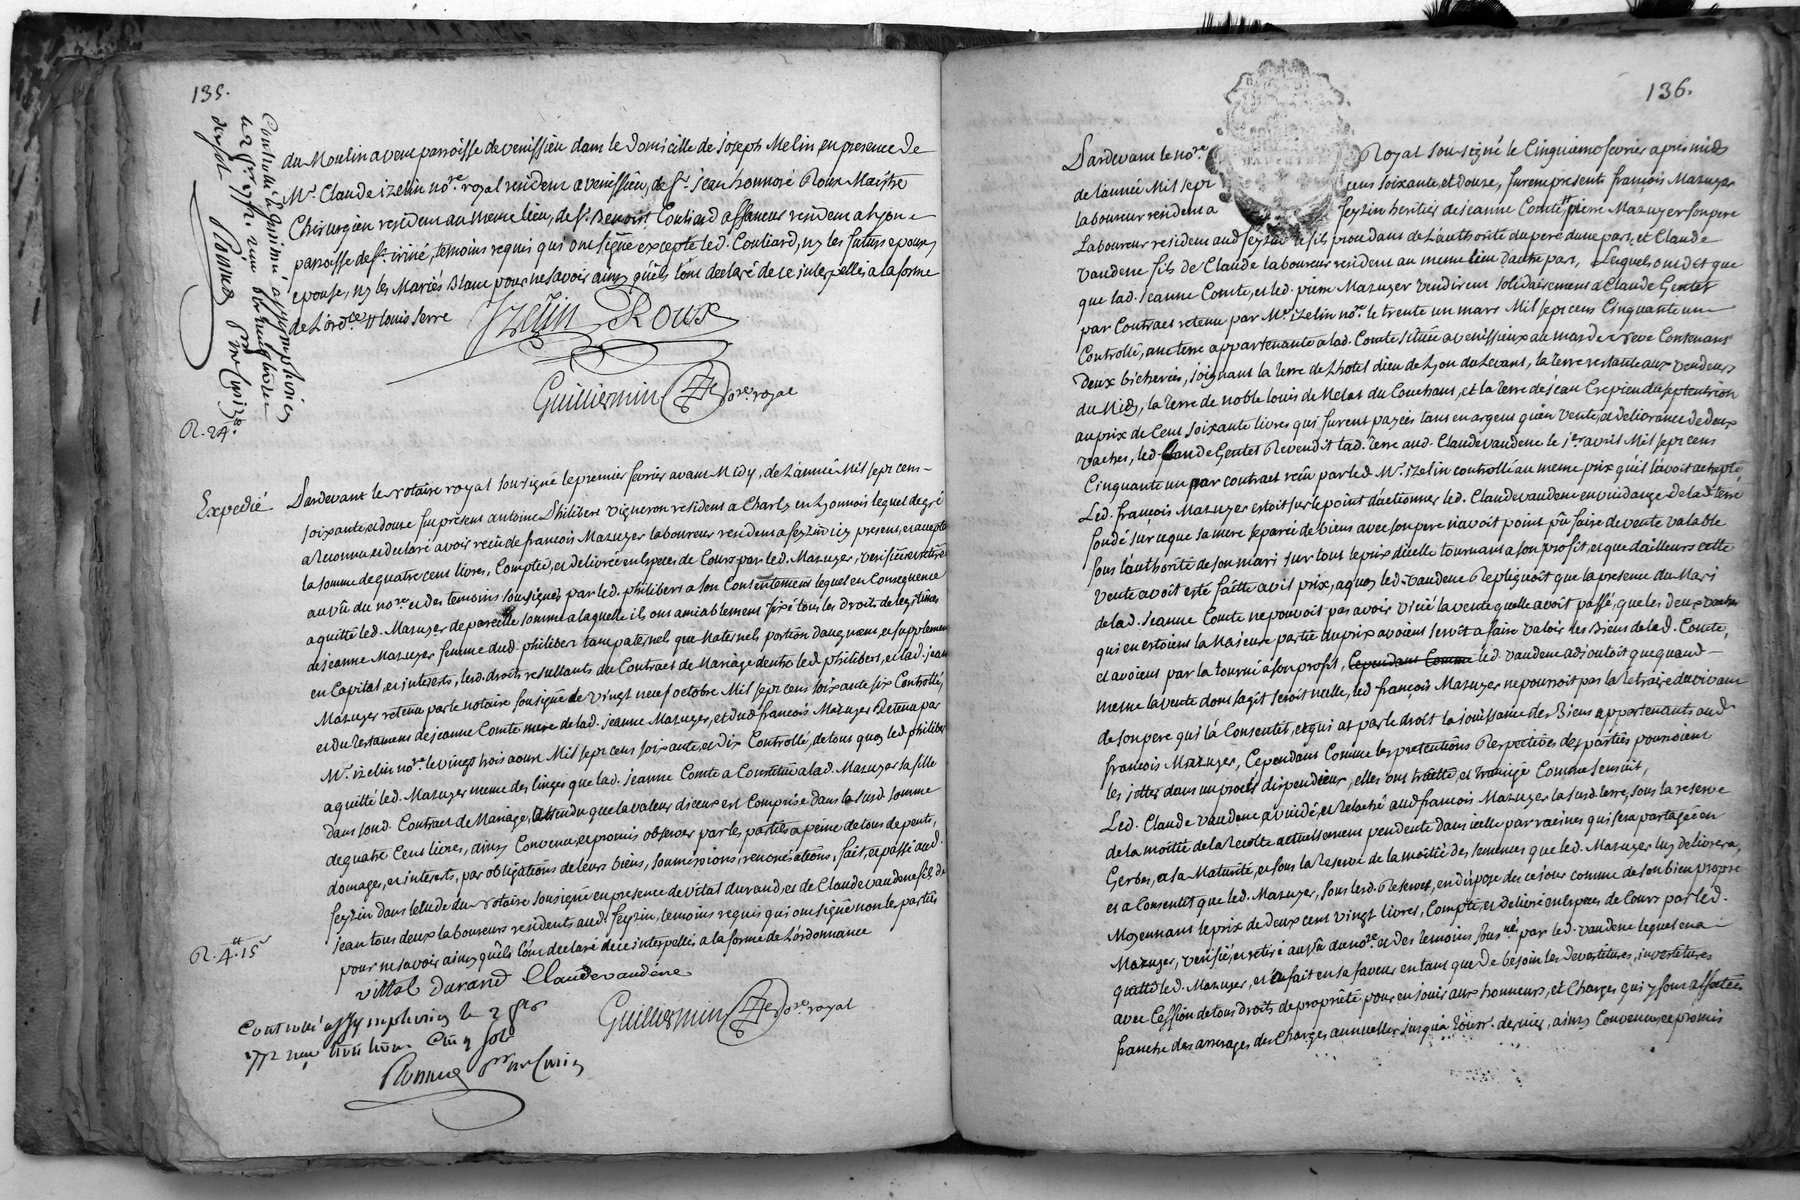 135.
du Moulin a vent parroisse de venissieu dans le domicille de joseph Melin, en presence de
Mr. Claude izelin nore. royal resident a venissieu, de sr. jean honnoré Roux Maistre
Chirurgien resident au meme lieu, de sr. Benoist Couliard affaneur resident a lyon
parroisse de st. iriné, temoins requis qui ont signé excepté led. Couliard, ny les futurs epoux,
epouse, ny les Mariés Blanc pour ne savoir ainsy qu'ils l'ont declaré de ce interpellés a la forme
de L'ordce. # louis serre
Izelin Roux
Guilliermin nore. royal
Controllé a st symphorien
R. 24.
Expedié
Pardevant le notaire royal soussigné le premier fevrier avant Midy, de L'année Mil sept cent
soixante, et douze fut present antoine Philibert vigneron resident a Charly en Lyonnois lequel de gré
a reconnu et declaré avoir reçu de françois Mazuyer laboureur resident a feyzin icy present, et acceptant
la somme de quatre cent livres, Comptée, et delivrée en Especes de Cours par led. Mazuyer, verifiée et retirée
au vû du nore. et des temoins soussignés par led. philibert a son Contentement lequel en Consequence
a quitté led. Mazuyer de pareille somme a laquelle ils ont amiablement fixé tous les droits de legitimes
de jeanne Mazuyer femme dud. philibert tant paternels que Maternels, portion d'augment, et supplement
en Capital, et interets, lesd. droits resultants du Contract de Mariage d'entre led. philibert, et lad. jeanne
Mazuyer retenu par le notaire soussigné le vingt neuf octobre Mil sept cent soixante six Controllé,
et du testament de jeanne Comte mere de lad. jeanne Mazuyer, et dud. françois Mazuyer Retenu par
Mr. izelin nore. le vingt trois aoust Mil sept cent soixante, et dix Controllé, de tous quoy led. philibert
a quitté led. Mazuyer meme des linges que lad. jeanne Comte a Constitué a lad. Mazuyer sa fille
dans sond. Contract de Mariage, attendu que la valeur d'iceux est Comprise dans la susd. somme
de quatre Cent livres, ainsy Convenu, et promis observer par les parties a peine de tous depents,
domages, et interets, par obligations de leurs biens, soumissions, renonciations, fait, et passé aud.
feyzin dans l'etude du notaire soussigné en presence de vital durand, et de Claude vaudene fils de
jean tous deux laboureurs residents aud. feyzin, temoins requis qui ont signé non les parties
pour ne savoir ainsy qu'ils l'ont declaré de ce interpellés a la forme de L'ordonnance
R. 4#. 15s
vittal durand Claude vaudéne
Guilliermin nore. royal
Controllé a st symphorien le 2 fer
1772 reçu

136.
Pardevant le nore. Royal soussigné le Cinquieme fevrier apres midy
de L'année Mil sept cent soixante, et douze, furent presents françois Mazuyer
laboureur resident a feyzin heritier de jeanne Comte, # pierre Mazuyer son pere
Laboureur resident aud. feyzin le fils procedant de L'authorité du pere d'une part, et Claude
vaudene fils de Claude laboureur resident au meme lieu d'autre part, Lesquels ont dit que
que lad. jeanne Comte, et led. pierre Mazuyer vendirent solidairement a Claude Gentet
par Contract retenu par Mr. izelin nore. le trente un mars Mil sept cent Cinquante un
Controllé, une terre appartenante a lad. Comte située a venissieux au mas de reve Contenant
deux bicherées, joignant la terre de L'hotel dieu de Lyon du Levant, la terre restante aux vendeurs
du Midy, la terre de noble louis de Melas du Couchant, et la terre de jean Crepieu du septentrion
au prix de Cent soixante livres qui furent payées tant en argent qu'en vente, et delivrance de deux
vaches, led. Claude Gentet Revendit lad. terre aud. Claude vaudene le 1er. avril Mil sept cent
Cinquante un par contract reçu par led. Mr. izelin controllé au meme prix qu'il l'avoit acheptée,
Led. françois Mazuyer estoit sur le point d'actionner led. Claude vaudene en vuidange de lad. terre
fondé sur ce que sa mere separée de biens avec son pere n'avoit point pû faire de vente valable
sous l'authorité de son mari sur tout le prix d'icelle tournant a son profit, et que d'ailleurs cette
vente avoit esté faitte a vil prix, a quoy led. vaudene Repliquoit que la presence du Mari
de lad. jeanne Comte ne pouvoit pas avoir vicié la vente quelle avoit passé, que les deux vaches
qui en estoient la Majeure partie du prix avoient servit a faire valoir les Biens de lad. Comte,
et avoient par la tourné a son profit, Cependant Comme led. vaudene adjoutoit que quand
meme la vente dont s'agit seroit nulle, led. françois Mazuyer ne pourroit pas la Retraire du vivant
de son pere qui l'a Consentit, et qui a par le droit la jouissance des Biens appartenants aud.
françois Mazuyer, Cependant Comme les pretentions Respectives des parties pourroient
les jetter dans un procès dispendieux, elles ont traitté, et transigé Comme s'ensuit,
Led. Claude vaudene a vuidé, et relaché aud. françois Mazuyer la susd. terre, sous la reserve
de la moitié de la Recolte actuellement pendente dans icelle par racines qui sera partagée en
Gerbes, a sa Maturité, et sous la Reserve de la moitié des semences que led. Mazuyer luy delivrera,
et a Consentit que led. Mazuyer, sous lesd. Reserves, en dispose dès ce jour comme de son bien propre
Moyennant le prix de deux cent vingt livres, Compté, et delivré en Especes de Cours par led.
Mazuyer, verifié, et retiré au vû du nore. et des temoins soussnés par led. vaudene lequel en a
quitté led. Mazuyer, et a fait en sa faveur en tant que de besoin les devestitures, investitures
avec Cession de tous droits de proprieté pour en jouir aux honneurs, et Charges qui y sont affectées
franche des arrerages des Charges annuelles jusqu'a jour dernier, ainsy Convenu, et promis